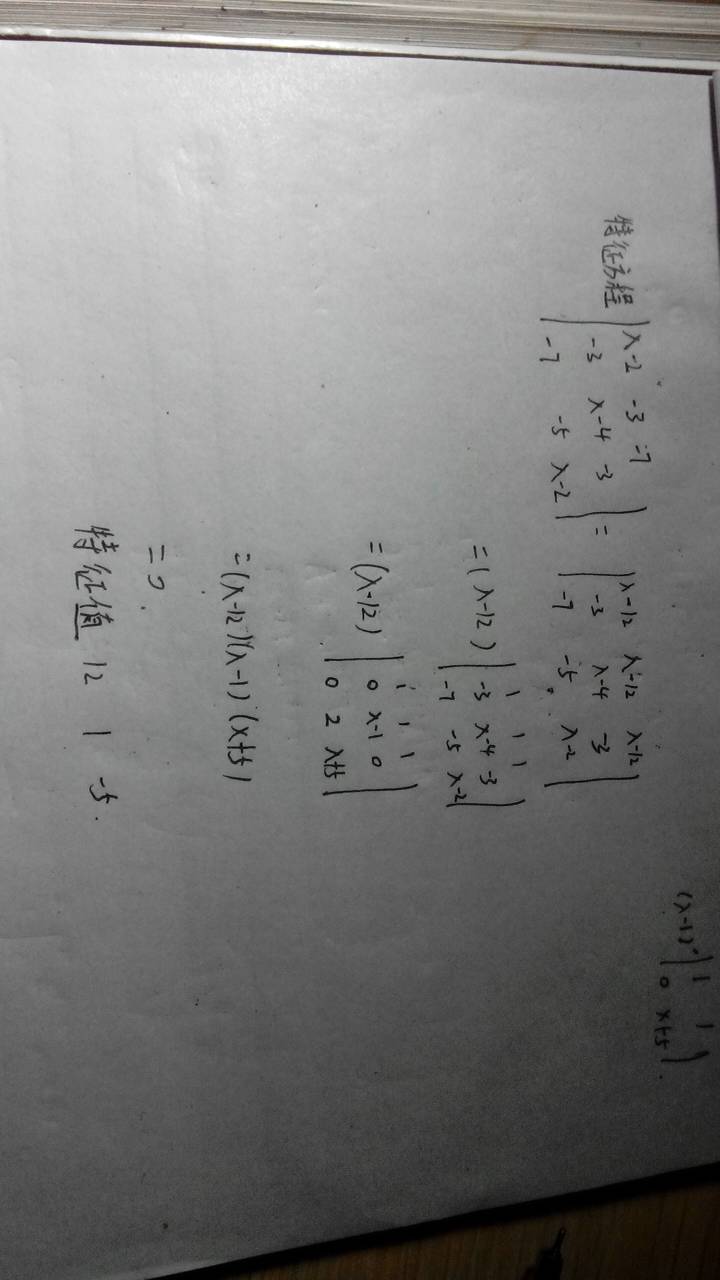 特征方程 | λ-2 -3 -7 | = | λ-12 λ-12 λ-12 |
| -3 λ-4 -3 | | -3 λ-4 -3 |
| -7 -5 λ-2 | | -7 -5 λ-2 |
=(λ-12) | 1 1 1 |
| -3 λ-4 -3 |
| -7 -5 λ-2 |
=(λ-12) | 1 1 1 |
| 0 λ-1 0 |
| 0 2 λ+5 |
=(λ-12)(λ-1)(λ+5)
=0.
特征值 12 1 -5.
(λ-1) | 1 1 |
| 0 λ+5 |.